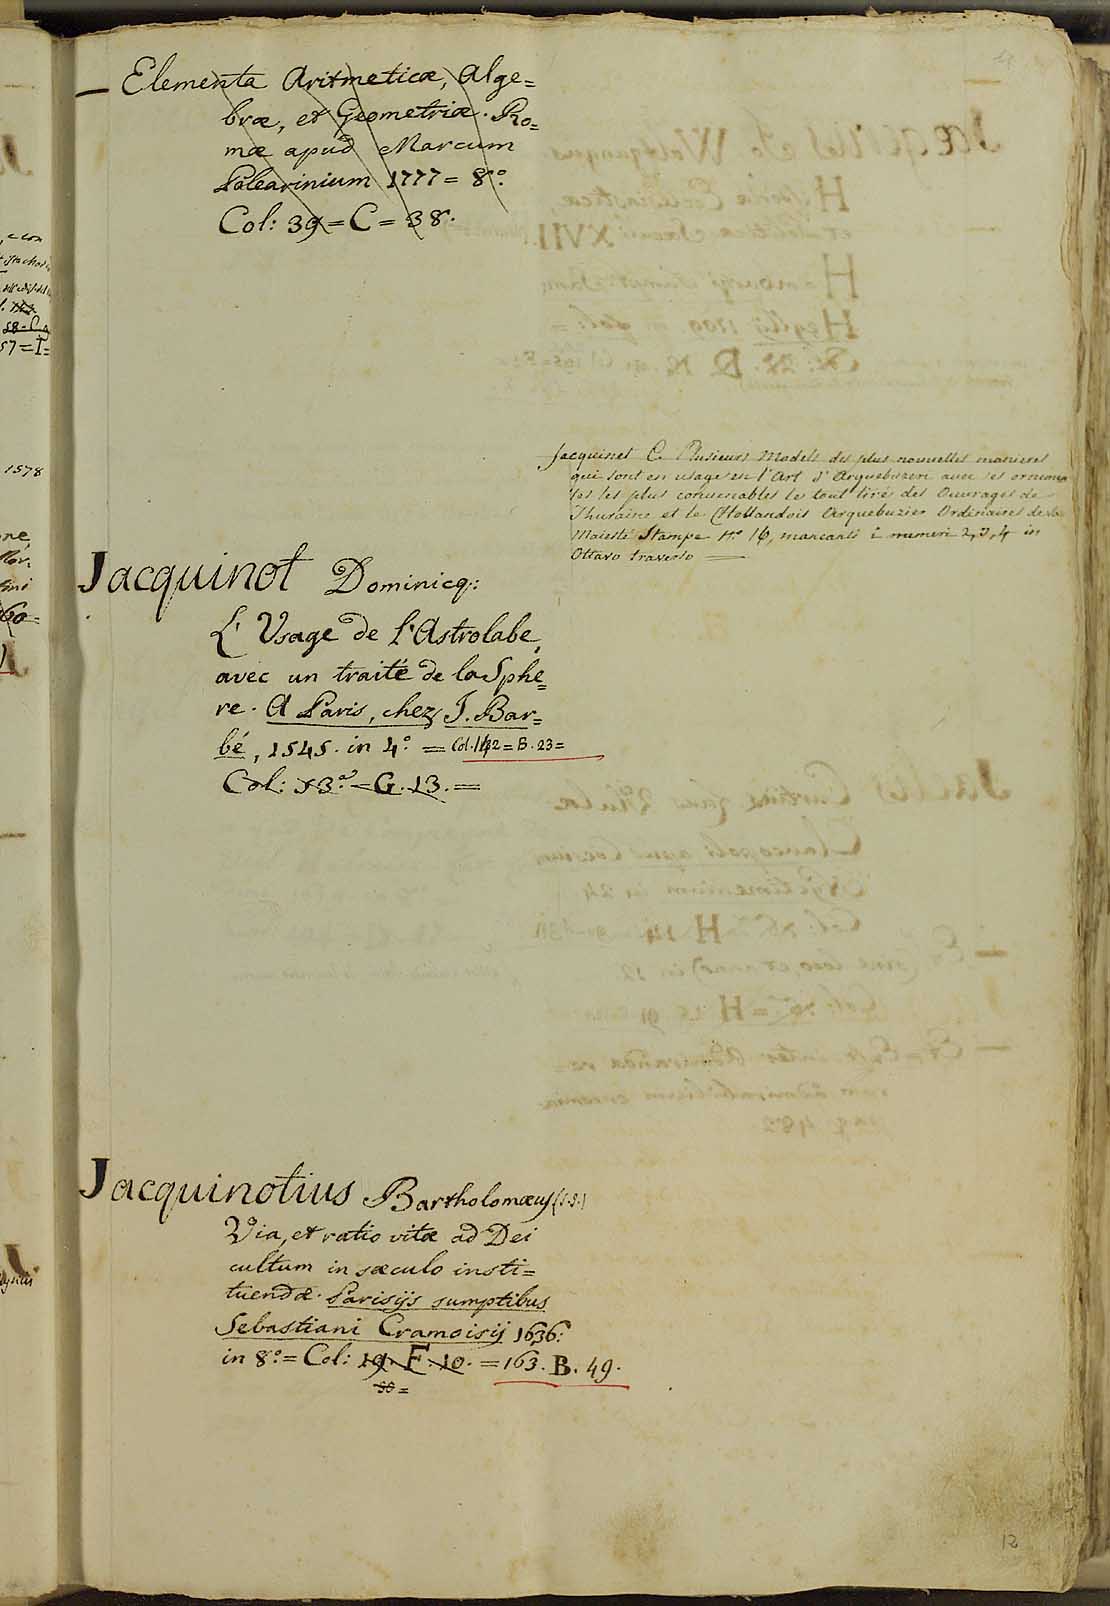 — Elementa Aritmeticæ, Alge=
bræ, et Geometriæ. Ro=
mæ apud Marcum
Palearinium 1777 = 8º.
Col: 39 = C = 38.
Jacquinet C. Plusieurs Models des plus nouvelles manieres
qui sont en usage en l'Art d'Arquebuzerie avec ses ornemen
tes les plus convenables le tout tiré des Ouvrages de
Thuraine et le Hollandois Arquebuzier Ordinaires de sa
Maiesté Stampe Nº 16, mancanti i numeri 2,3,4 in
Ottavo traverso —
Jacquinot Dominicq:
L' Usage de l'Astrolabe,
avec un traité de la Sphe=
re. A Paris, chez J. Bar=
bé, 1545. in 4º. = Col. 142 = B. 23 =
Col: 13. = G. 13. =
Jacquinotius Bartholomæus (S.J.)
Via, et ratio vitæ ad Dei
cultum in sæculo insti=
tuendæ. Parisijs sumptibus
Sebastiani Cramoisij 1636:
in 8º. = Col: 19. F. 10. = 163. B. 49.
12